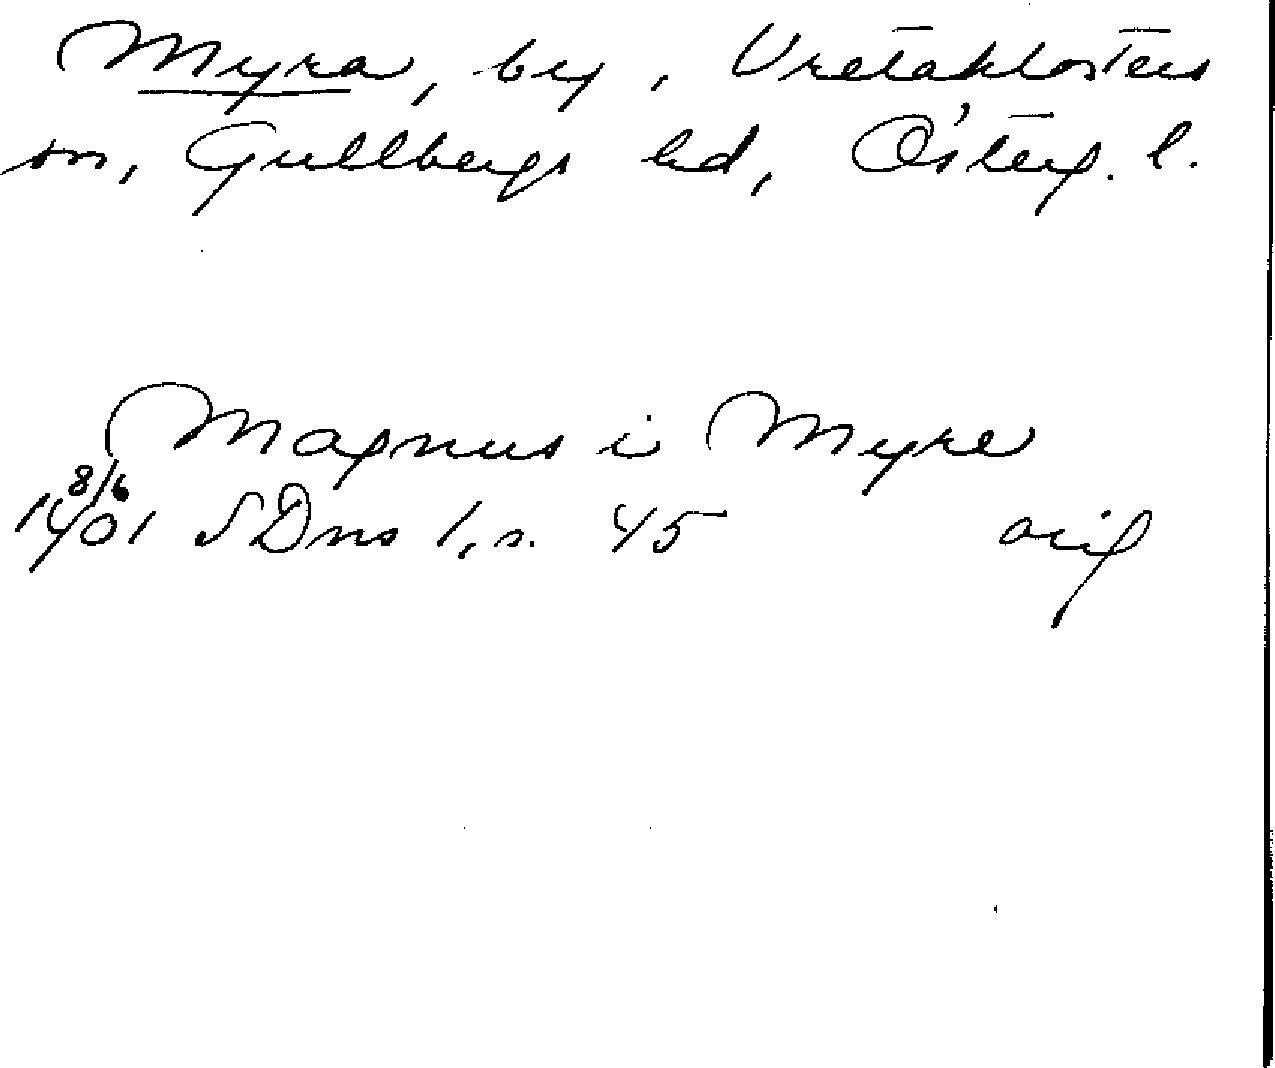 Myra, by, Vretaklosters
sn, Gullbergs hd, Österg. l.
Magnus i Myre
8/6
1401 SDns 1, s. 45 orig